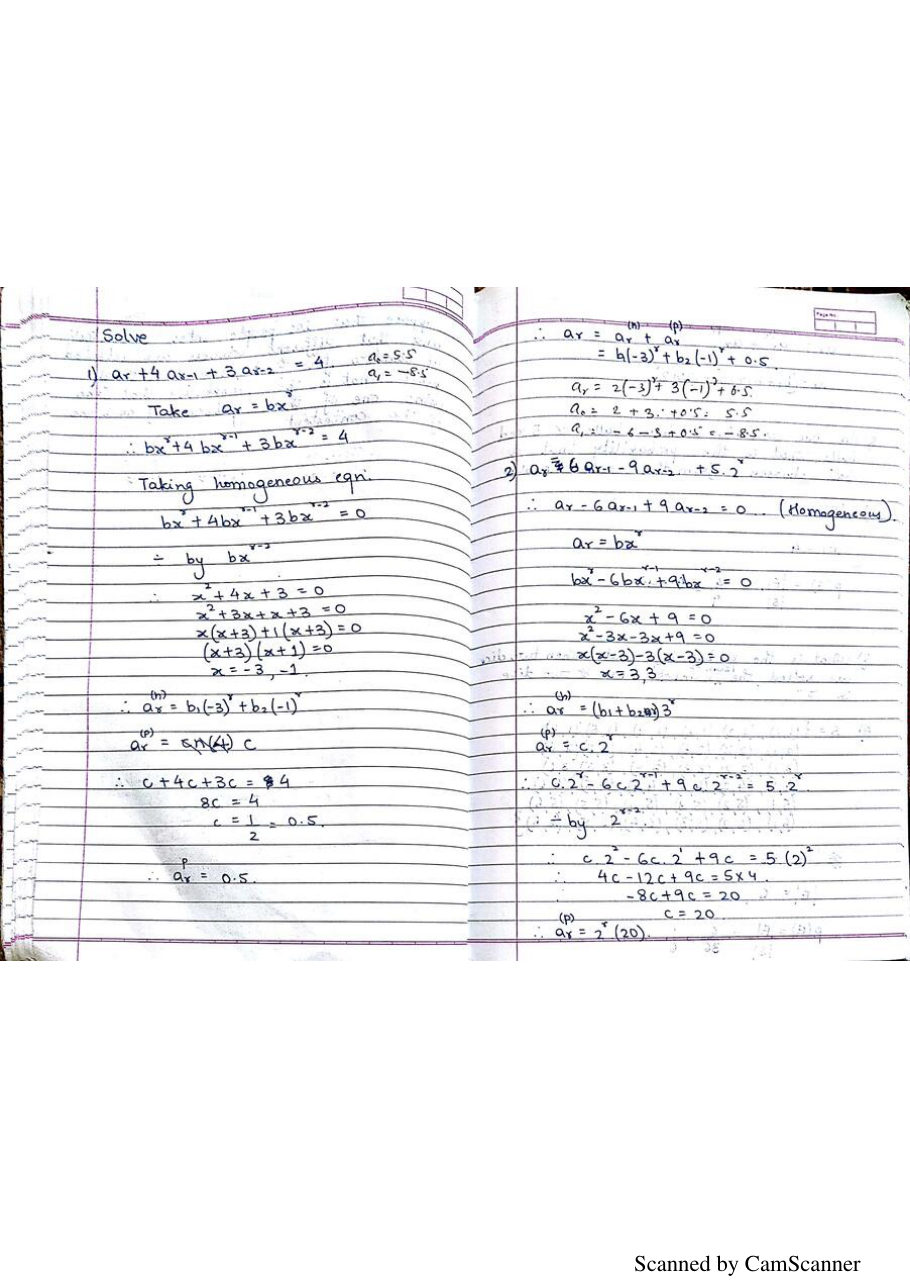 Solve
1) ar + 4 ar-1 + 3 ar-2 = 4 a₀ = 5.5
a₁ = -8.5
Take ar = bx^r
∴ bx^r + 4 bx^r-1 + 3bx^r-2 = 4
Taking homogeneous eqn.
bx^r + 4bx^r-1 + 3bx^r-2 = 0
÷ by bx^r-2
∴ x² + 4x + 3 = 0
x² + 3x + x + 3 = 0
x(x+3) + 1(x+3) = 0
(x+3)(x+1) = 0
x = -3, -1
∴ ar^(h) = b₁(-3)^r + b₂(-1)^r
ar^(p) = c
∴ c + 4c + 3c = 4
8c = 4
c = 1/2 = 0.5.
∴ ar^p = 0.5.
∴ ar = ar^(h) + ar^(p)
= b(-3)^r + b₂(-1)^r + 0.5
ar = 2(-3)^r + 3(-1)^r + 0.5
a₀ = 2 + 3 + 0.5 = 5.5
a₁ = -6 - 3 + 0.5 = -8.5.
2) ar = 6 ar-1 - 9 ar-2 + 5.2^r
∴ ar - 6 ar-1 + 9 ar-2 = 0 ... (Homogeneous).
ar = bx^r
bx^r - 6bx^r-1 + 9bx^r-2 = 0
x² - 6x + 9 = 0
x² - 3x - 3x + 9 = 0
x(x-3) - 3(x-3) = 0
x = 3, 3
∴ ar^(h) = (b₁ + b₂r) 3^r
ar^(p) = c.2^r
∴ c.2^r - 6c.2^r-1 + 9c.2^r-2 = 5.2^r
÷ by 2^r-2
∴ c.2² - 6c.2¹ + 9c = 5.(2)²
∴ 4c - 12c + 9c = 5×4
-8c + 9c = 20
c = 20
∴ ar^(p) = 2^r (20).
Scanned by CamScanner